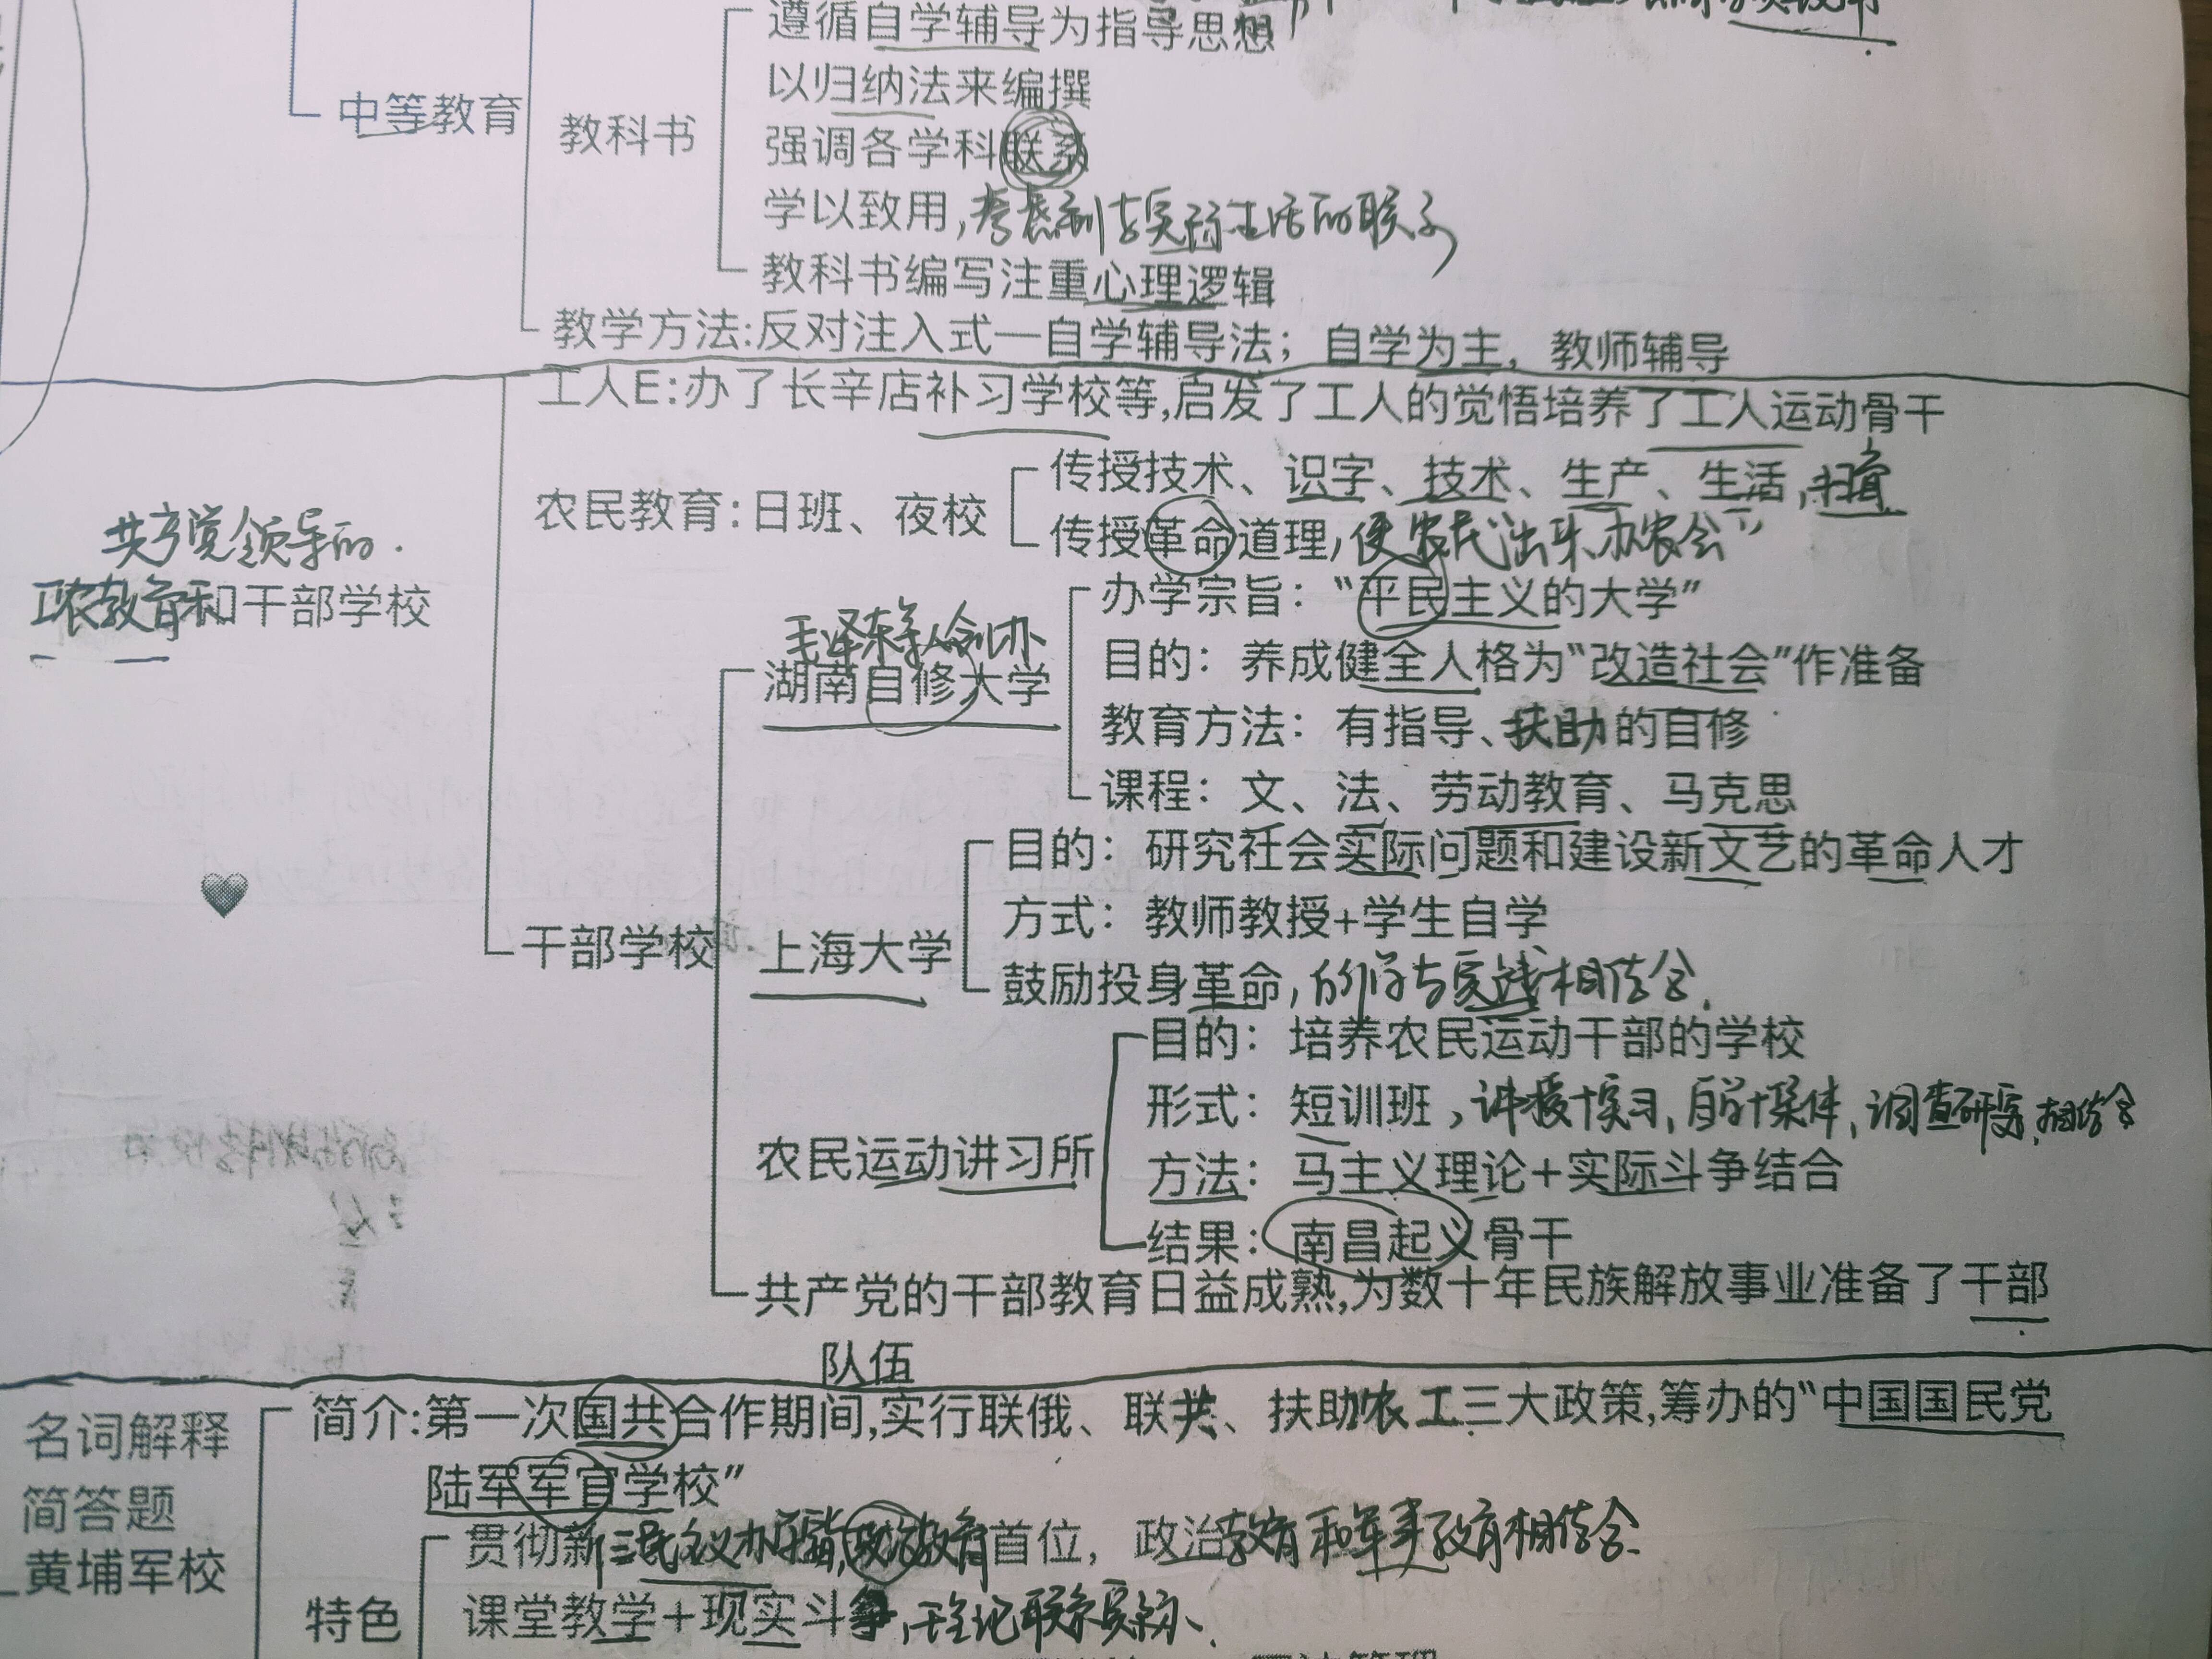 遵循自学辅导为指导思想
以归纳法来编撰
中等教育
教科书
强调各学科联系
学以致用，考虑到与实际生活的联系
教科书编写注重心理逻辑
教学方法:反对注入式—自学辅导法；自学为主，教师辅导
工人E:办了长辛店补习学校等,启发了工人的觉悟培养了工人运动骨干
传授技术、识字、技术、生产、生活，扫盲
农民教育:日班、夜校
传授革命道理，使农民"出来办农会"
共产党领导的
工农教育和干部学校
办学宗旨："平民主义的大学"
毛泽东等人创办
湖南自修大学
目的：养成健全人格为"改造社会"作准备
教育方法：有指导、扶助的自修
课程：文、法、劳动教育、马克思
目的：研究社会实际问题和建设新文艺的革命人才
方式：教师教授+学生自学
干部学校
上海大学
鼓励投身革命，所学与实践相结合.
目的：培养农民运动干部的学校
形式：短训班，讲授+实习，自学+集体，调查研究,相结合
农民运动讲习所
方法：马主义理论+实际斗争结合
结果：南昌起义骨干
共产党的干部教育日益成熟,为数十年民族解放事业准备了干部
队伍
名词解释
简答题
黄埔军校
简介:第一次国共合作期间,实行联俄、联共、扶助农工三大政策,筹办的"中国国民党
陆军军官学校"
特色
贯彻新三民主义办学宗旨,政治教育首位，政治教育和军事教育相结合.
课堂教学+现实斗争，理论联系实际、